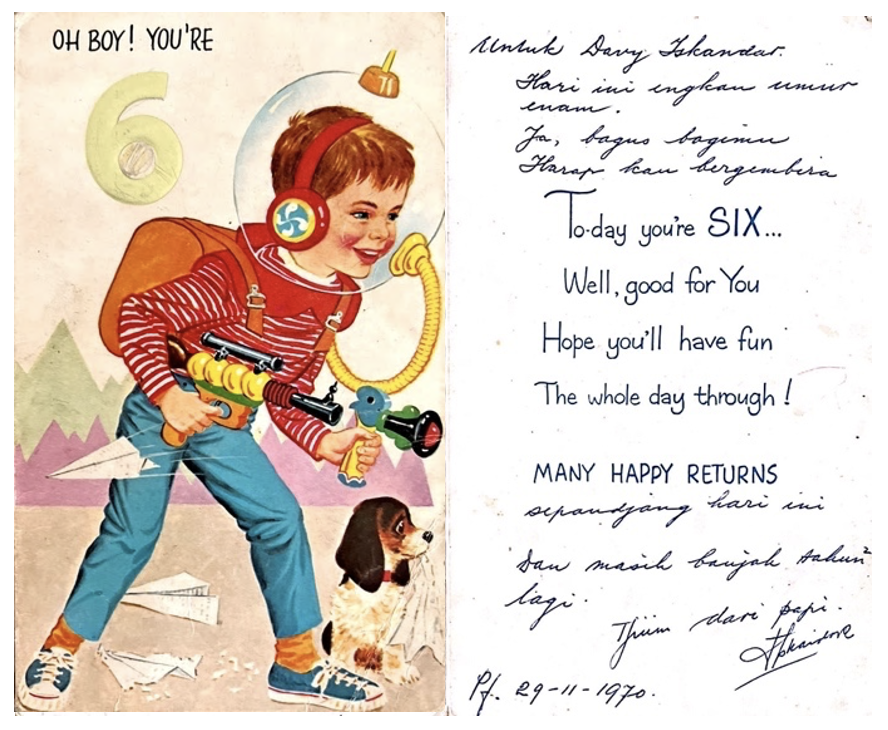 OH BOY! YOU'RE
6
Untuk Davy Iskandar.
Hari ini engkau umur
enam.
Ja, bagus bagimu
Harap kau bergembira
To-day you're SIX...
Well, good for You
Hope you'll have fun
The whole day through!
MANY HAPPY RETURNS
sepandjang hari ini
Dan masih banjak tahun²
lagi.
Tjium dari papi.
Iskandar
Pf. 29-11-1970.